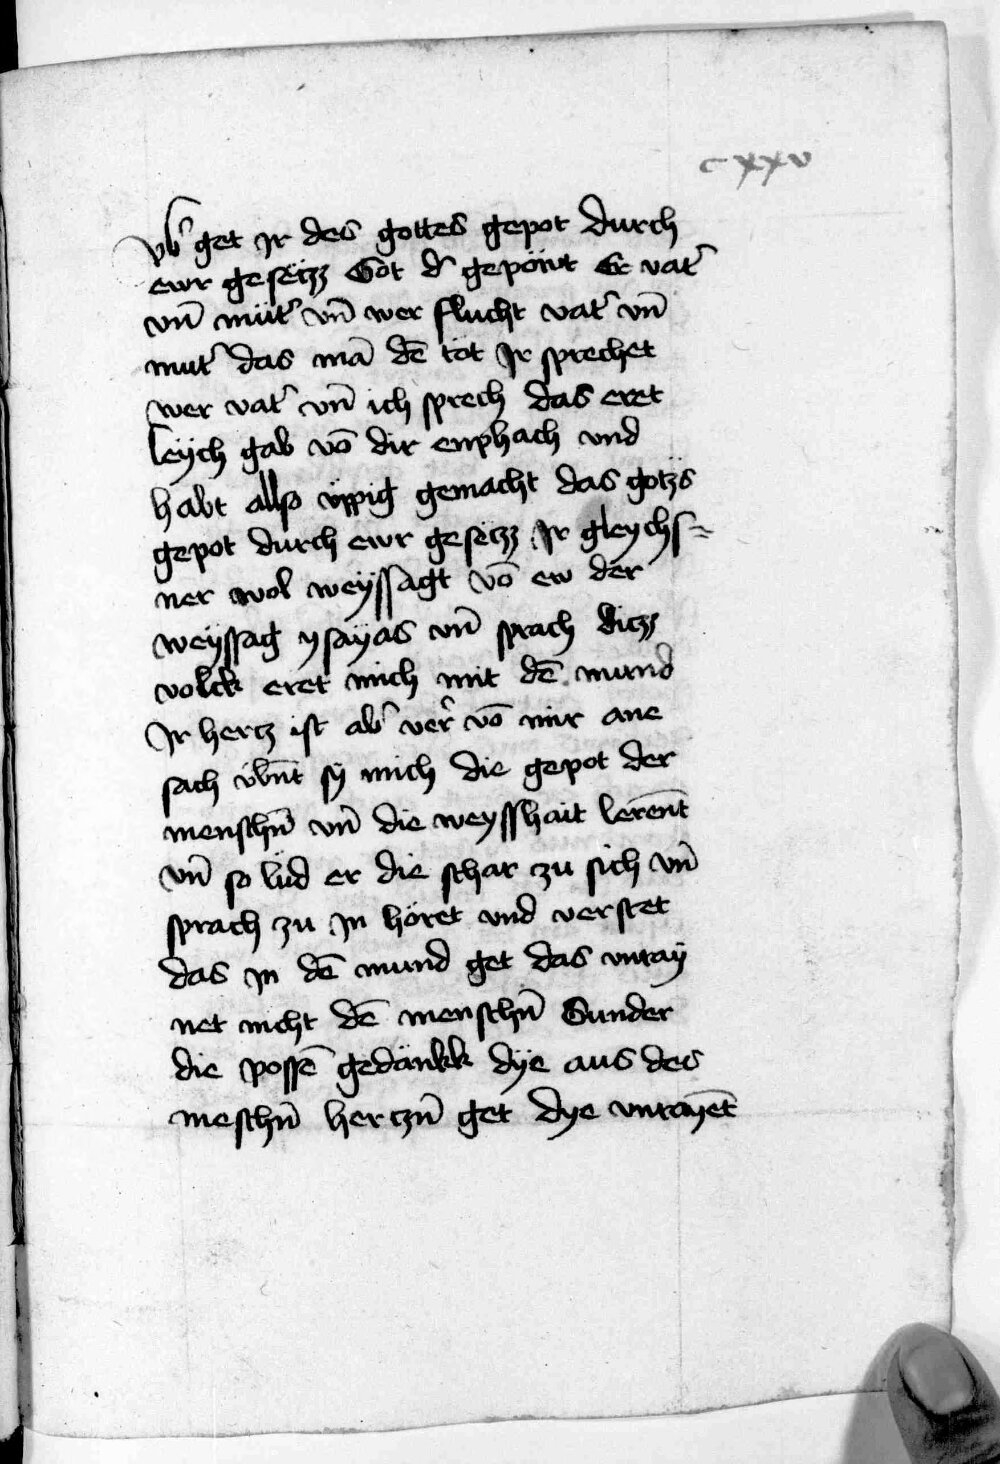 cxxv
vb᷒ get Jr des gottes gepot durch
ewr gesëtzz Got d᷒ gepöwt Er vat᷒
vn̄ müt᷒ vn̄ wer flucht vat᷒ vn̄
mut᷒ das mā dē töt Jr sprechet
wer vat᷒ vn̄ ich sprech das eret
leÿch gab vō dir enphach vnd
habt allso üppig gemacht das gotzs
gepot durch ewr gesëtzz Jr gleychs=
ner wol weÿssagt vō ew der
weÿssag ysaÿas vn̄ sprach ditzz
volck eret mich mit dē mund
Jr hertz ist ab᷒ ver᷒ vō mir ane
sach vb̄nt sÿ mich die gepot der
menschn̄ vn̄ die weysshait lerēnt
vn̄ so lüd er die schar zu sich vn̄
sprach zu Jn höret vnd verstet
das Jn dē mund get das vnraÿ
net nicht dē menschn̄ Sunder
die possē gedänkk dÿe aus des
meschn̄ hertzn̄ get dye vnrayēt